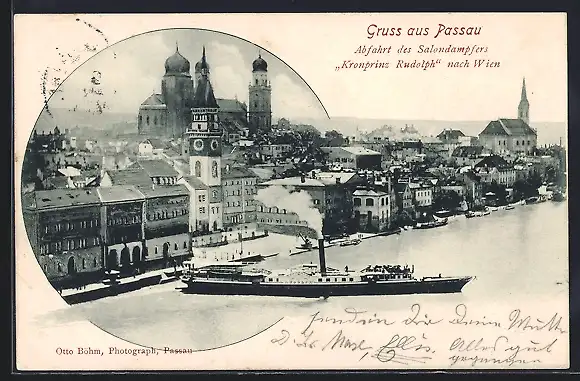 Gruss aus Passau
Abfahrt des Salondampfers
„Kronprinz Rudolph“ nach Wien
Otto Böhm, Photograph, Passau
senden die Deine Mutter
Alles gut
gegangen